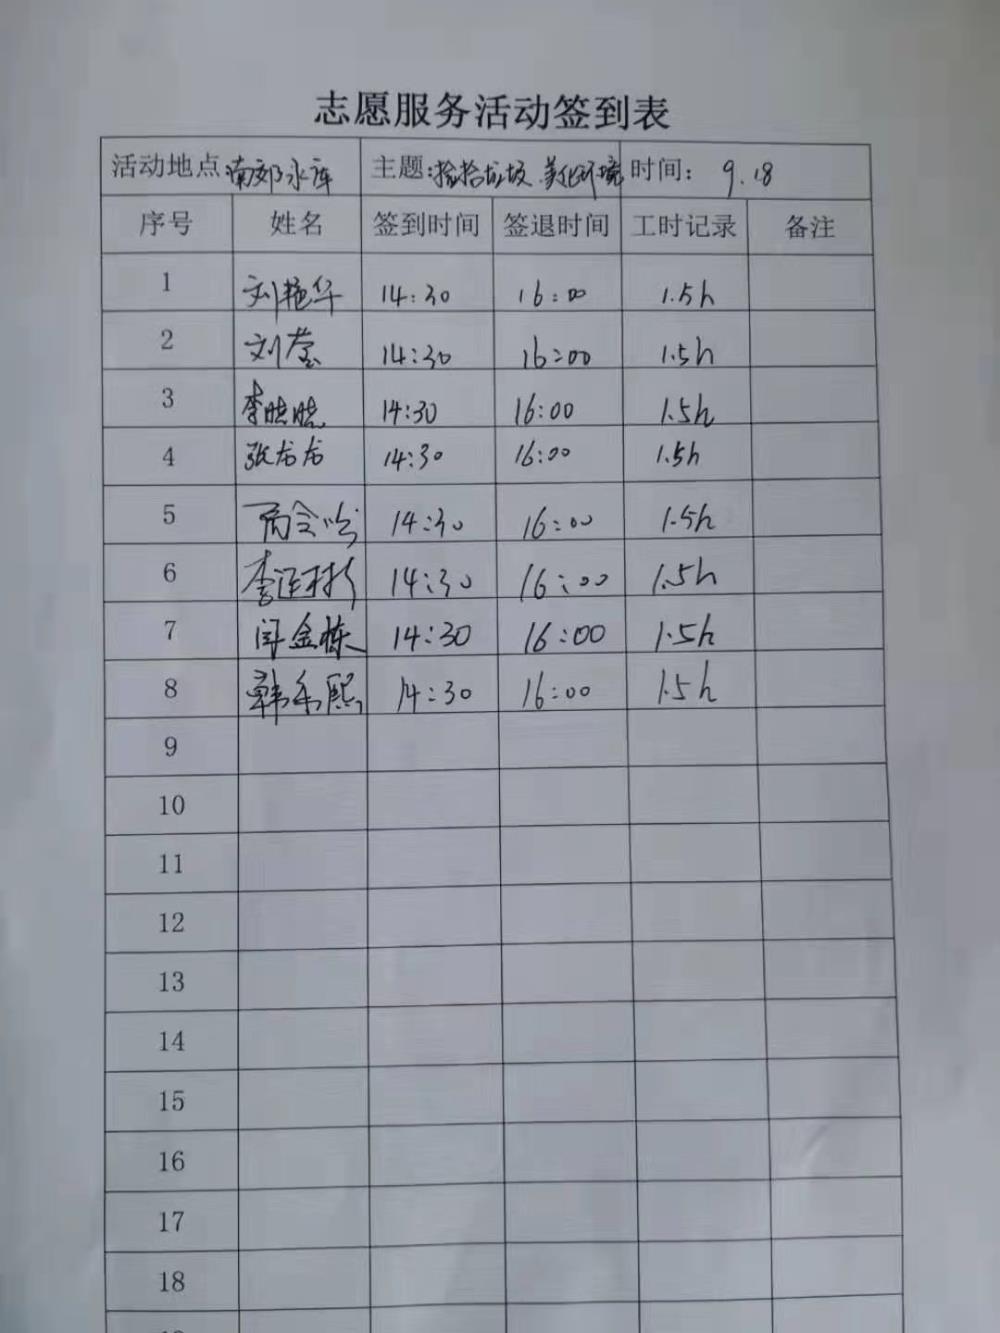 志愿服务活动签到表
活动地点 南郊水库 主题:捡拾垃圾 美化环境 时间: 9.18
序号 姓名 签到时间 签退时间 工时记录 备注
1 刘艳华 14:30 16:00 1.5h
2 刘莹 14:30 16:00 1.5h
3 李晓晓 14:30 16:00 1.5h
4 张龙龙 14:30 16:00 1.5h
5 14:30 16:00 1.5h
6 14:30 16:00 1.5h
7 闫金栋 14:30 16:00 1.5h
8 14:30 16:00 1.5h
9
10
11
12
13
14
15
16
17
18